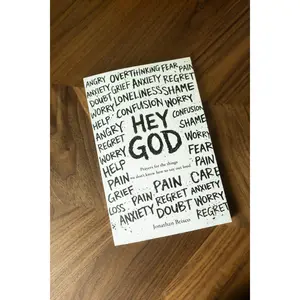 ANGRY OVERTHINKING FEAR PAIN
ANXIETY GRIEF ANXIETY REGRET
DOUBT LONELINESS SHAME
HELP CONFUSION WORRY
ANGRY HEY CONFUSION
REGRET GOD SHAME
WORRY WORRY
HELP Prayers for the things FEAR
PAIN we don't know how to say out loud PAIN
GRIEF PAIN CARE
LOSS PAIN REGRET ANXIETY
ANXIETY DOUBT WORRY
Jonathan REGRET